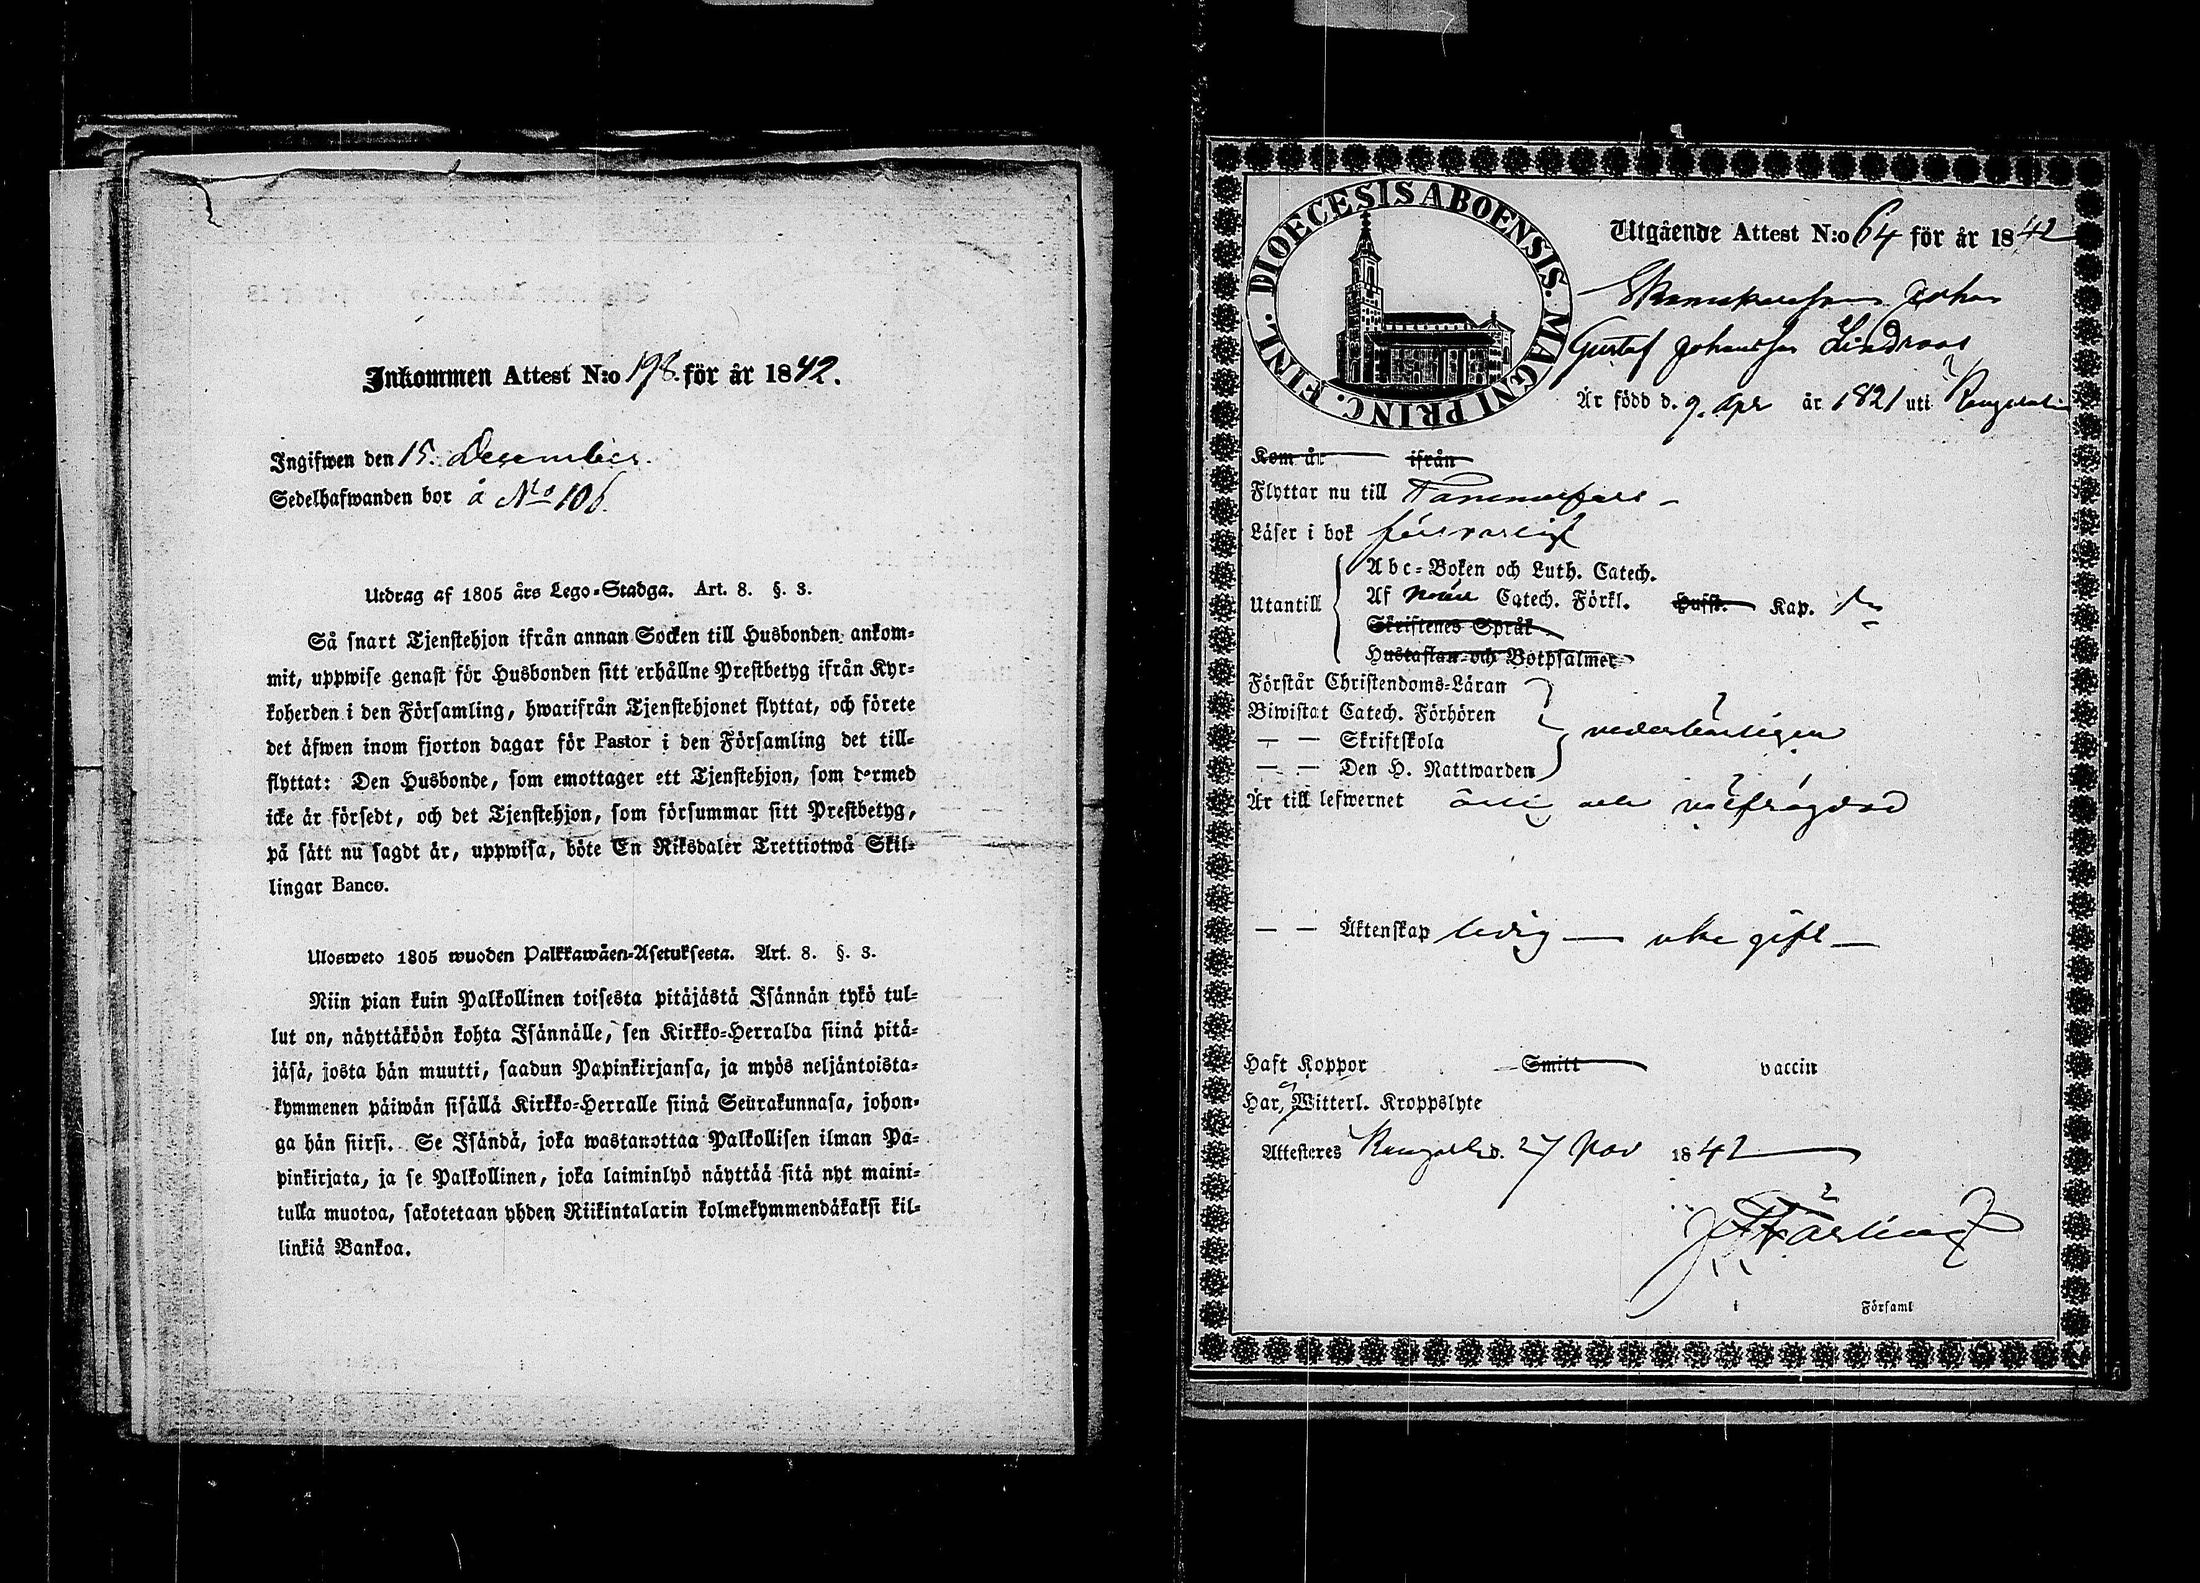 Inkommen Attest N:o 198. för år 1842.
Ingifwen den 15. December.
Sedelhafwanden bor å No 106.
Utdrag af 1805 års Lego-Stadga. Art. 8. §. 3.
Så snart Tjenstehjon ifrån annan Socken till Husbonden ankom-
mit, uppwise genast för Husbonden sitt erhållne Prestbetyg ifrån Kyr-
koherden i den Församling, hwarifrån Tjenstehjonet flyttat, och förete
det äfwen inom fjorton dagar för Pastor i den Församling det till-
flyttat: Den Husbonde, som emottager ett Tjenstehjon, som dermed
icke är försedt, och det Tjenstehjon, som försummar sitt Prestbetyg,
på sätt nu sagdt är, uppwisa, böte En Riksdaler Trettiotwå Skil-
lingar Banco.
Ulosweto 1805 wuoden Palkkawäen-Asetuksesta. Art. 8. §. 3.
Niin pian kuin Palkollinen toisesta pitäjästä Isännän tykö tul-
lut on, näyttäköön kohta Isännälle, sen Kirkko-Herralda siinä pitä-
jäsä, josta hän muutti, saadun Papinkirjansa, ja myös neljäntoista-
kymmenen päiwän sisällä Kirkko-Herralle siinä Seurakunnasa, johon-
ga hän siirsi. Se Isändä, joka wastanottaa Palkollisen ilman Pa-
pinkirjata, ja se Palkollinen, joka laiminlyö näyttää sitä nyt maini-
tulla muotoa, sakotetaan yhden Riikintalarin kolmekymmendäkaksi kil-
linkiä Bankoa.
DIOECESIS ABOENSIS. MAGNI PRINC. FINL.
Utgående Attest N:o 64 för år 1842
Johan
Gustaf Johansson Lindroos
Är född d. 9. Apr år 1821 uti Kangasala
Kom år ifrån
Flyttar nu till Tammerfors
Läser i bok försvarligt
Utantill
Abc-Boken och Luth. Catech.
Af Catech. Förkl. Hussl. Kap.
Skriftenes Språk
Hustaflan och Botpsalmer
Förstår Christendoms-Läran
Biwistat Catech. Förhören
— — Skriftskola
— — Den H. Nattwarden
vederbörligen
Är till lefwernet ärlig och välfrägdad
— — Äktenskap ledig — icke gift —
Haft Koppor Smitt vaccin
Har, Witterl. Kroppslyte
Attesteres Kangasala d. 27 Nov 1842
i Församl